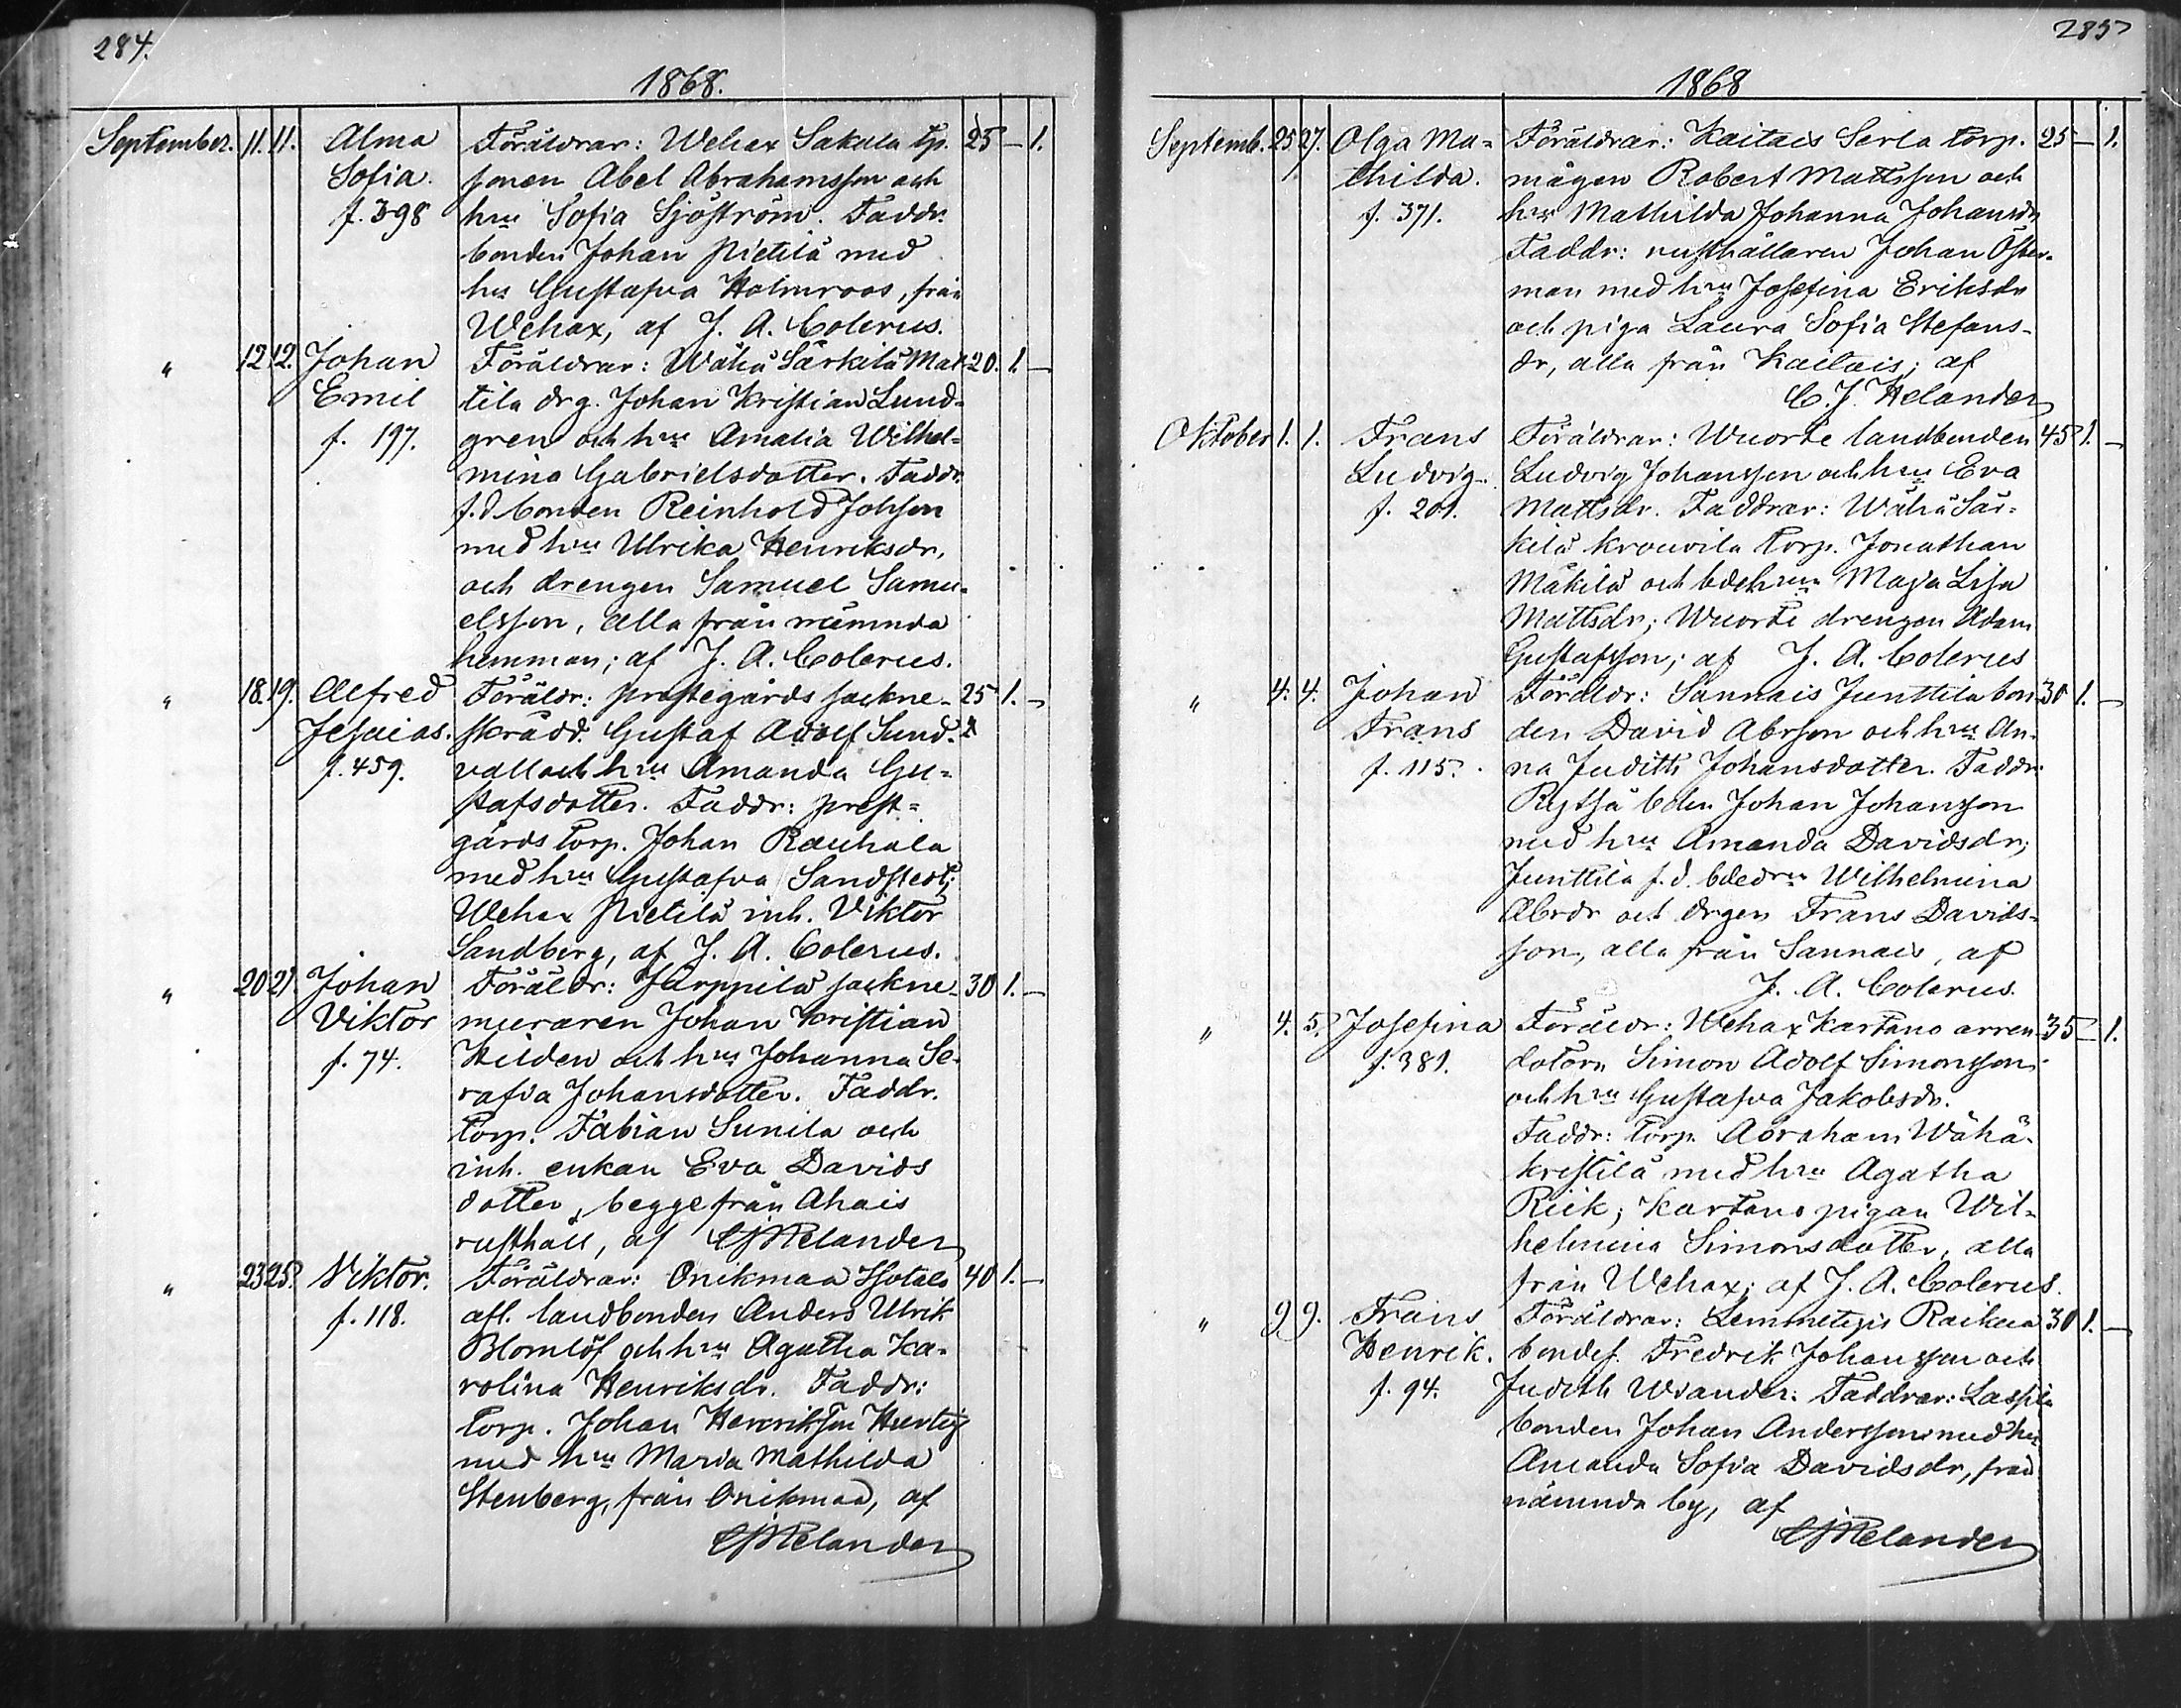 284.
1868.
September. 11. 11. Alma Föräldrar: Wehax Sakula tp. 25 — 1.
Sofia. sonen Abel Abrahamsson och
f. 398 hru Sofia Sjöström. Faddr.
bonden Johan Pietilä med
hu Gustafva Holmroos, från
Wehax, af J. A. Colerus.
" 12. 12. Johan Föräldrar: Wähä Särkilä Mat- 20. 1. —
Emil tila drg. Johan Kristian Lund-
f. 197. gren och hru Amalia Wilhel-
mina Gabrielsdotter. Faddr.
f.d bonden Reinhold Johsson
med hru Ulrika Henriksdr,
och drengen Samuel Samu-
elsson, alla från nämnda
hemman; af J. A. Colerus.
" 18. 19. Alfred Föräldr: prestegårds sockne- 25 1. —
Jesaias. skrädd. Gustaf Adolf Sund-
f. 459. vall och hru Amanda Gu-
stafsdotter. Faddr: prest-
gårds torp. Johan Rauhala
med hru Gustafva Sandstedt;
Wehax Pietilä inh. Viktor
Sandberg, af J. A. Colerus.
" 20 21. Johan Föräldr: Järppilä sockne- 30 1. —
Viktor muraren Johan Kristian
f. 74. Hilden och hru Johanna Se-
rafia Johansdotter. Faddr.
torp. Fabian Sunila och
inh. enkan Eva Davids
dotter, begge från Ahais
rusthåll, af CJHelander
" 23 25. Viktor. Föräldrar: Onikmaa Isotalo 40 1. —
f. 118. afl. landbonden Anders Ulrik
Blomlöf och hru Agatha Ka-
rolina Henriksdr. Faddr:
torp. Johan Henriksson Hurtig
med hru Maria Mathilda
Stenberg, från Onikmaa, af
CJHelander
285
1868
Septemb. 25 27. Olga Ma- Föräldrar: Kaitais Serla torp. 25 — 1.
thilda. mågen Robert Mattsson och
f. 371. hru Mathilda Johanna Johansdr
Faddr: rusthållaren Johan Öster-
man med hru Josefina Eriksdr
och piga Laura Sofia Stefans-
dr, alla från Kaitais; af
C. J. Helander
Oktober 1. 1. Frans Föräldrar: Wuorte landbonden 45 1. —
Ludvig. Ludvig Johansson och hru Eva
f. 201. Mattsdr. Faddrar: Wähä Sär-
kilä Krouvila torp. Jonathan
Mäkilä och bdehrun Maja Lisa
Mattsdr; Wuorte drengen Adam
Gustafsson; af J. A. Colerus
" 4. 4. Johan Föräldr: Sannais Junttila bon- 30 1. —
Frans den David Abrson och hru An-
f. 115. na Judith Johansdotter. Faddr:
bden Johan Johansson
med hru Amanda Davidsdr;
Junttila f.d. Wilhelmina
Abrdr och drgen Frans Davids-
son, alla från Sannais, af
J. A. Colerus.
" 4. 5. Josefina Föräldr: Wehax Kartano arren- 35 — 1.
f. 381. datorn Simon Adolf Simonsson
och hru Gustafva Jakobsdr.
Faddr: torp. Abraham Wähä-
kristilä med hru Agatha
Riek; Kartano pigan Wil-
helmina Simonsdotter, alla
från Wehax; af J. A. Colerus.
" 9 9. Frans Föräldrar: Raikua 30 1. —
Henrik. bondes. Fredrik Johansson och
f. 94. Judith Wiander. Faddrar:
bonden Johan Andersson med hu
Amanda Sofia Davidsdr, från
nämnda by, af
CJHelander